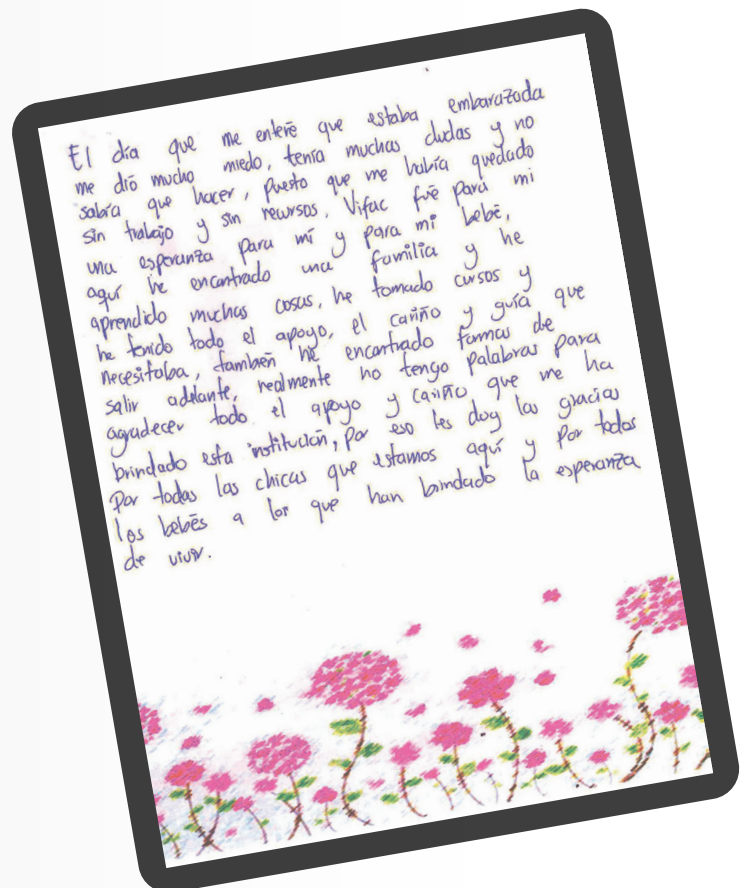 El día que me enteré que estaba embarazada
me dió mucho miedo, tenía muchas dudas y no
sabía que hacer, puesto que me había quedado
sin trabajo y sin recursos. Vifac fué para mi
una esperanza para mí y para mi bebé,
aquí he encontrado una familia y he
aprendido muchas cosas, he tomado cursos y
he tenido todo el apoyo, el cariño y guía que
necesitaba, también he encontrado formas de
salir adelante, realmente no tengo palabras para
agradecer todo el apoyo y cariño que me ha
brindado esta institución, por eso les doy las gracias
Por todas las chicas que estamos aquí y por todos
los bebés a los que han brindado la esperanza
de vivir.